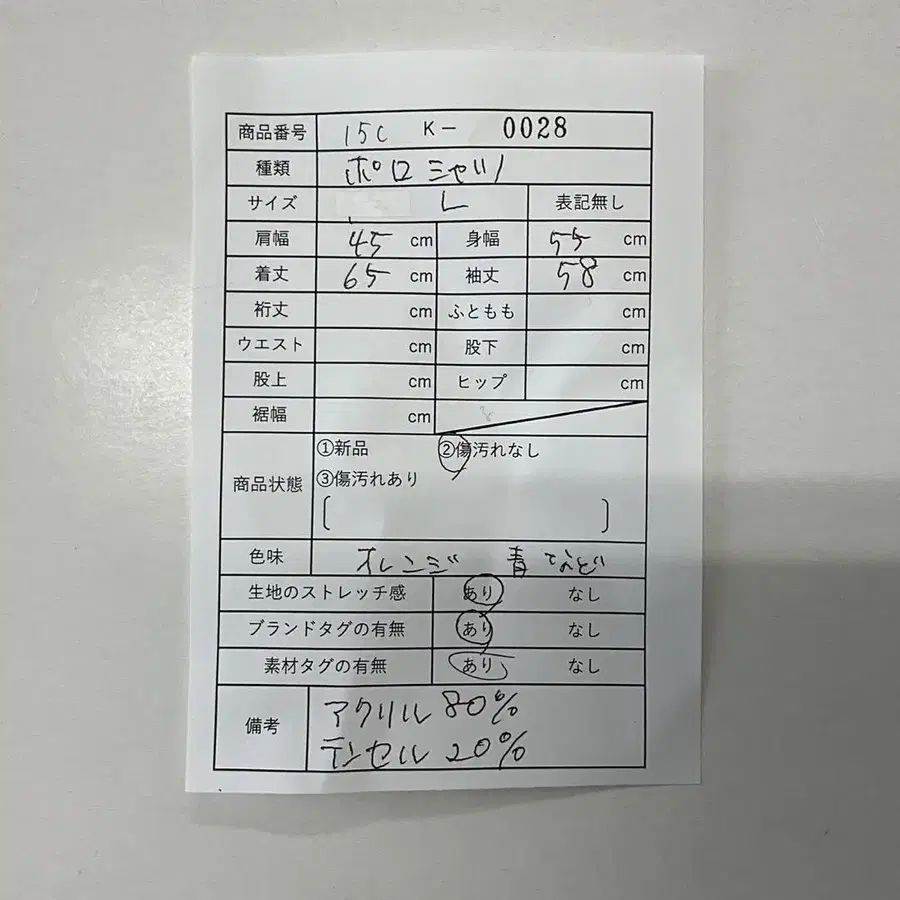 商品番号 15C K- 0028
種類 ポロシャツ
サイズ L 表記無し
肩幅 45 cm 身幅 55 cm
着丈 65 cm 袖丈 58 cm
裄丈 cm ふともも cm
ウエスト cm 股下 cm
股上 cm ヒップ cm
裾幅 cm
商品状態 ①新品 ②傷汚れなし
③傷汚れあり
[ ]
色味 オレンジ 青 など
生地のストレッチ感 あり なし
ブランドタグの有無 あり なし
素材タグの有無 あり なし
備考 アクリル 80%
テンセル 20%